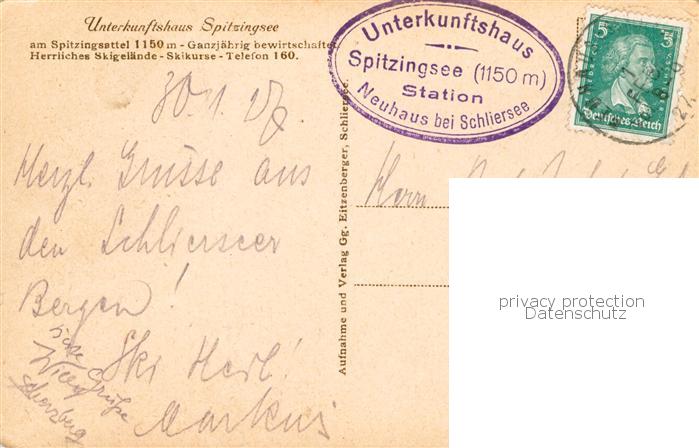 Unterkunftshaus Spitzingsee
am Spitzingsattel 1150 m - Ganzjährig bewirtschaftet
Herrliches Skigelände - Skikurse - Telefon 160.
Unterkunftshaus
Spitzingsee (1150 m)
Station
Neuhaus bei Schliersee
5 5
Deutsches Reich
30.1.27
Herzl. Grüsse aus
den Schlierseer
Bergen!
Ski Heil!
Markus
Grüße
Willy
Herrn
Aufnahme und Verlag Gg. Eitzenberger, Schliersee.
privacy protection
Datenschutz